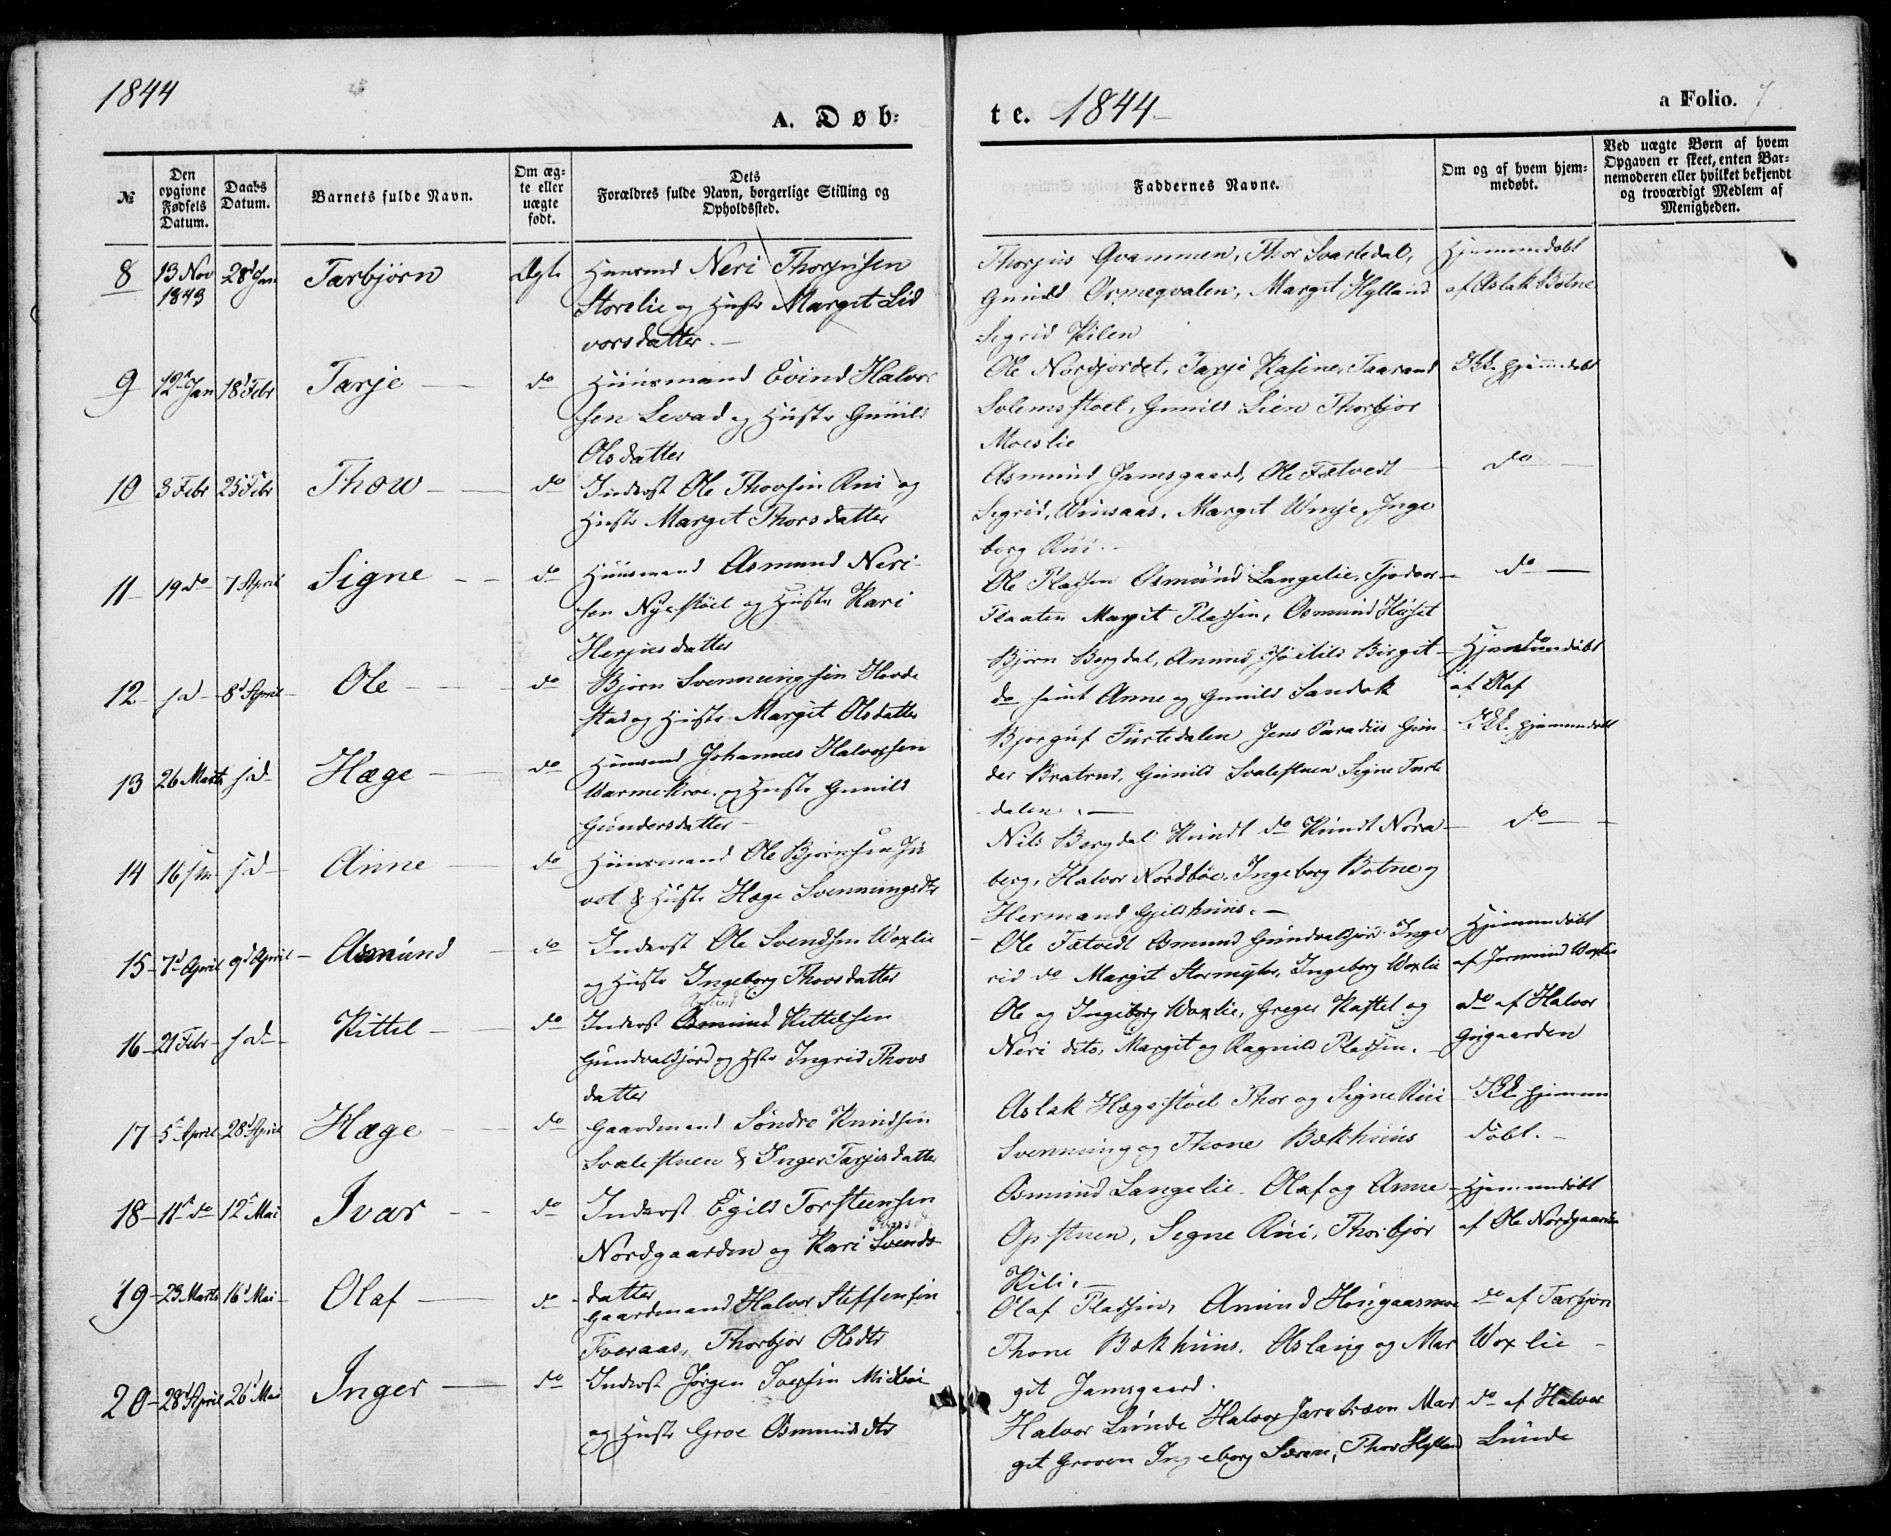 1844
A. Døb=
te. 1844
a Folio. 7
№
Den opgivne Fødsels Datum.
Daabs Datum.
Barnets fulde Navn.
Om ægte eller uægte født.
Dets Forældres fulde Navn, borgerlige Stilling og Opholdssted.
Faddernes Navne.
Om og af hvem hjemmedøbt.
Ved uægte Børn af hvem Opgaven er skeet, enten Barnemoderen eller hvilket bekjendt og troværdigt Medlem af Menigheden.
8 13 Nov 1843 28d Jan Tarbjørn Ægte Huusmd Neri Thorjusen
Storelie og Hustr Margit Lid
vorsdatter. —
Thorjus Qvammen, Thor Svartedal,
Gunild Ormeqvalen, Margit Hylland
Sigrid Kilen
Hjemmedøbt
af Aslak Botne
9 12d Jan 18d Febr Tarje do Huusmand Eivind Halvor
sen Levad og Hustr Gunild
Olsdatter
Ole Nordjordet, Tarje Kasine, Taarand
Solemsstoel, Gunild Lien Thorbjor
Moeslie
Ikke hjemmedøbt
10 3 Febr 25d Febr Thow do Inderst Ole Thovsen Rui og
Hustr Margit Thorsdatter
Asmund Jamsgaard, Ole Fætvedt
Sigrid Winsaas, Margit Winje, Inge
borg Rui. —
do
11 19 do 7 April Signe do Huusmand Asmund Neri
sen Nyestöel og Hustr Kari
Herjusdatter
Ole Pladsen Osmund Langelie, Tjodvor
Flaaten Margit Pladsen, Osmund Huset
do
12 s.d. 8d April Ole do Bjørn Svenningsen Hovde
stad og Hustr Margit Olsdatter
Bjørn Bergdal, Anund Birgit
do samt Anne og Gunild Sandok
Hjemmedøbt
af Olaf
13 26 Marts s.d. Hæge do Huusmd Johannes Halvorsen
Warmekroe. og Hustr Gunild
Gundersdatter
Bjorguf Turtedalen Jens Paradiis Gun
der Bratrud, Gunild Svalestuen, Signe Turte
dalen. —
Ikke hjemmedøbt
14 16 s.m. s.d. Anne do Huusmand Ole Bjørnsen Ju
vet & Hustr Hæge Svenningsdtr
Nils Bergdal Knudt do Knudt Nora
berg, Halvor Nordbøe, Ingeborg Botne og
Hermand Gjelshuus. —
do
15 7d April 9d April Asmund do Inderst Ole Svendsen Woxlie
og Hustr Ingeborg Thovsdatter
Ole Fætvedt Osmund Gundvaldjord Inge
rid do Margit Stormyhr, Ingeborg Woxlie
Hjemmedøbt
af Jormund Woxlie
16 21 Febr s.d. Kittil do Inderst Osmund Kittelsen
Gundvaldjord og Hstr Ingrid Thovs
datter
Ole og Ingeborg Woxlie, Greger Kastet og
Neri dito, Margit og Ragnild Pladsen.
do af Halvor
Gugaarden
17 5 April 28d April Hæge do Gaardmand Søndre Knudsen
Svalestuen & Inger Tarjesdatter
Aslak Hægestoel Thor og Signe Rui
Svenning og Thone Bækhuus
Ikke hjemme
døbt. —
18 11d do 12d Mai Ivar do Inderst Egild Torsteensen
Nordgaarden og Kari Svends
datter
Osmund Langelie. Olaf og Anne
Opstuen, Signe Rui, Thorbjor
Kili. —
Hjemmedøbt
af Ole Nordgaarden
19 23 Marts 16d Mai Olaf do Gaardmand Halvor Steffensen
Tveraas, Thorbjor Olsdtr
Olaf Pladsen, Amund Hougaasmoe
Thone Bækhuus. Aslaug og Mar
git Jamsgaard.
do af Tarbjørn
Woxlie
20 28d April 26d Mai Inger do Inderst Jørgen Iversen Midbøe
og Hustr Groe Osmundsdtr
Halvor Lunde Halvor Mar
git Groven Ingeborg Særen, Thor Hylland
do af Halvor
Lunde